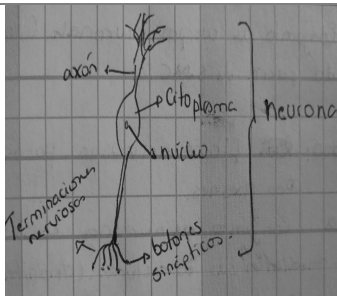 axón
citoplasma
neurona
núcleo
Terminaciones
nerviosas
botones
sinápticos.